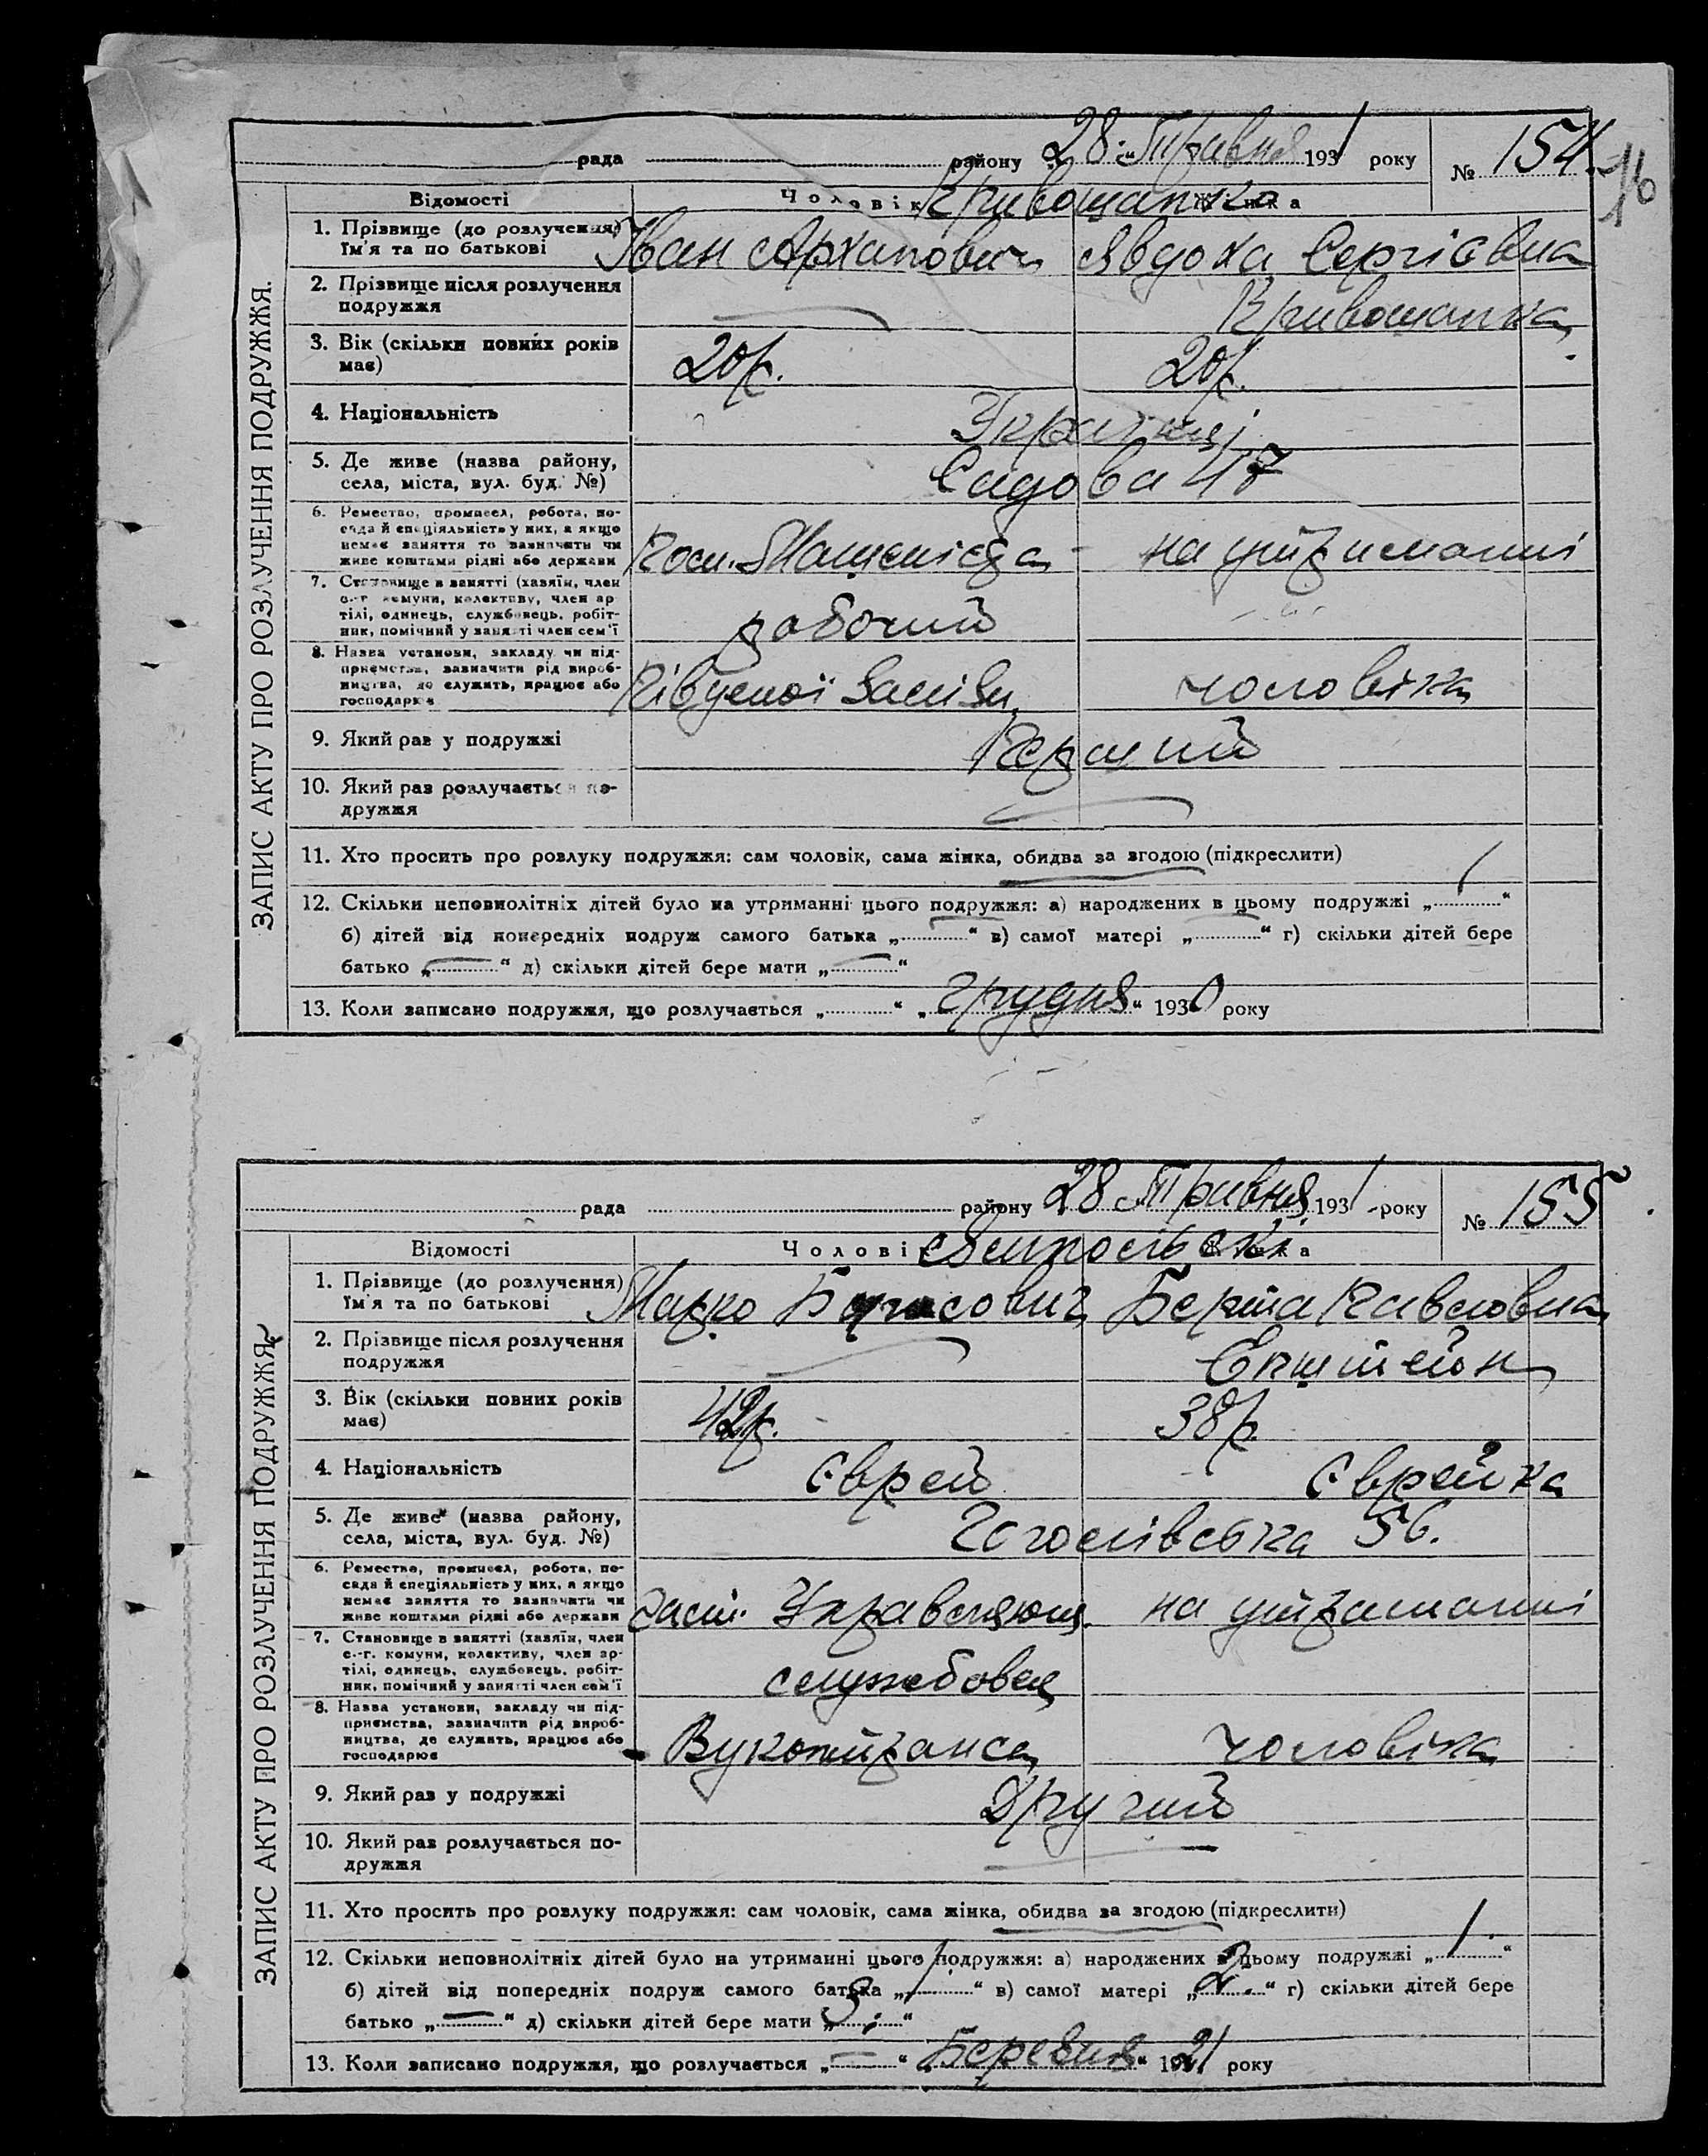 рада району 28 „Травня 1931 року № 154
16
ЗАПИС АКТУ ПРО РОЗЛУЧЕННЯ ПОДРУЖЖЯ.
Відомості Чоловік Кривошапка Жінка
1. Прізвище (до розлучення) Ім'я та по батькові Іван Архипович Явдоха Сергієвна
2. Прізвище після розлучення подружжя Кривошапка
3. Вік (скільки повних років має) 20 р. 20 р.
4. Національність Українці
5. Де живе (назва району, села, міста, вул. буд. №) Садова 47
6. Ремество, промисел, робота, посада й спеціяльність у них, а якщо немає заняття то зазначити чи живе коштами рідні або держави на утриманні
7. Становище в занятті (хазяїн, член с.-г. комуни, колективу, член артілі, одинець, службовець, робітник, помічний у занятті член сем'ї рабочий
8. Назва установи, закладу чи підприємства, зазначити рід виробництва, де служить, працює або господарює чоловіка
9. Який раз у подружжі Перший
10. Який раз розлучається подружжя
11. Хто просить про розлуку подружжя: сам чоловік, сама жінка, обидва за згодою (підкреслити)
12. Скільки неповнолітніх дітей було на утриманні цього подружжя: а) народжених в цьому подружжі „ / “
б) дітей від попередніх подруж самого батька „ “ в) самої матері „ “ г) скільки дітей бере
батько „ — “ д) скільки дітей бере мати „ — “
13. Коли записано подружжя, що розлучається „ “ „Грудня“ 1930 року
рада району 28 „Травня 1931 року № 155
ЗАПИС АКТУ ПРО РОЗЛУЧЕННЯ ПОДРУЖЖЯ
Відомості Чоловік Жінка
1. Прізвище (до розлучення) Ім'я та по батькові Марко Борисович Берта Павловна
2. Прізвище після розлучення подружжя Епштейн
3. Вік (скільки повних років має) 42 р. 38 р.
4. Національність Єврей Єврейка
5. Де живе (назва району, села, міста, вул. буд. №) Гоголівська 56.
6. Ремество, промисел, робота, посада й спеціяльність у них, а якщо немає заняття то зазначити чи живе коштами рідні або держави Заст. Управляющ. на утриманні
7. Становище в занятті (хазяїн, член с.-г. комуни, колективу, член артілі, одинець, службовець, робітник, помічний у занятті член сем'ї службовец
8. Назва установи, закладу чи підприємства, зазначити рід виробництва, де служить, працює або господарює Вукопитранса чоловіка
9. Який раз у подружжі Другий
10. Який раз розлучається подружжя —
11. Хто просить про розлуку подружжя: сам чоловік, сама жінка, обидва за згодою (підкреслити)
12. Скільки неповнолітніх дітей було на утриманні цього подружжя: а) народжених в цьому подружжі „ 1 “
б) дітей від попередніх подруж самого батька „ 1 “ в) самої матері „ 2 “ г) скільки дітей бере
батько „ — “ д) скільки дітей бере мати „ 3 “
13. Коли записано подружжя, що розлучається „ — “ „Березня“ 1921 року